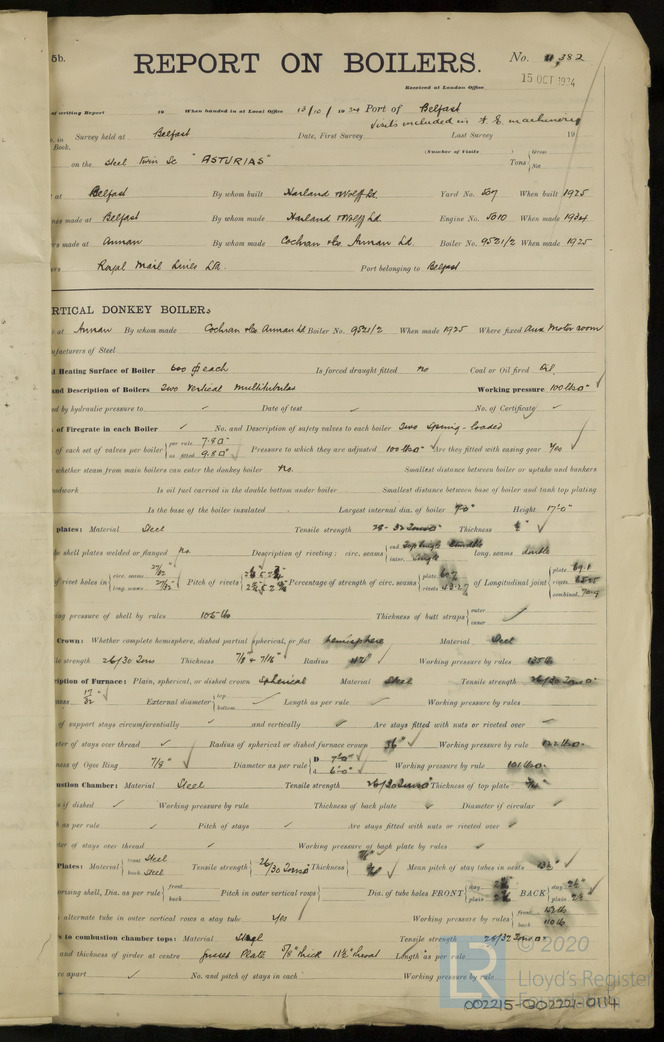 5b.
REPORT ON BOILERS.
No. 382
15 OCT 1924
Received at London Office
of writing Report 19 When handed in at Local Office 13/10/1924 Port of Belfast
Visits included in machinery
No. in Survey held at Belfast Date, First Survey Last Survey 19
Book. (Number of Visits
on the Steel Twin Sc "ASTURIAS" Tons { Gross
Net
at Belfast By whom built Harland & Wolff Ld. Yard No. 507 When built 1925
nes made at Belfast By whom made Harland & Wolff Ld. Engine No. 5010 When made 1924
rs made at Annan By whom made Cochran & Co. Annan Ld. Boiler No. 9521/2 When made 1925
ers Royal Mail Lines Ld. Port belonging to Belfast
RTICAL DONKEY BOILERs
at Annan By whom made Cochran & Co. Annan Ld Boiler No. 9521/2 When made 1925 Where fixed Aux. Motor room
ufacturers of Steel
l Heating Surface of Boiler 600 each Is forced draught fitted no Coal or Oil fired Oil
and Description of Boilers Two Vertical Multitubular Working pressure 100 lbs
ed by hydraulic pressure to Date of test No. of Certificate
of Firegrate in each Boiler No. and Description of safety valves to each boiler Two Spring-loaded
of each set of valves per boiler { per rule 7.8
as fitted 9.8 Pressure to which they are adjusted 100 lbs Are they fitted with easing gear yes
whether steam from main boilers can enter the donkey boiler no. Smallest distance between boiler or uptake and bunkers
odwork Is oil fuel carried in the double bottom under boiler Smallest distance between base of boiler and tank top plating
Is the base of the boiler insulated Largest internal dia. of boiler Height 17'0"
plates: Material Steel Tensile strength 28-32 Tons Thickness
he shell plates welded or flanged no. Description of riveting: circ. seams { end
inter. long. seams double
of rivet holes in { circ. seams 27/32
long. seams 27/32 Pitch of rivets Percentage of strength of circ. seams { plate
rivets of Longitudinal joint { plate
rivets
combined
ing pressure of shell by rules 105 lbs Thickness of butt straps { outer
inner
Crown: Whether complete hemisphere, dished partial spherical, or flat hemisphere Material Steel
le strength 26/30 Tons Thickness 7/8 & 7/16" Radius Working pressure by rules 135 lb
ription of Furnace: Plain, spherical, or dished crown Spherical Material Steel Tensile strength 26/30 Tons
ness 17/32 External diameter { top
bottom Length as per rule Working pressure by rules
of support stays circumferentially and vertically Are stays fitted with nuts or riveted over
eter of stays over thread Radius of spherical or dished furnace crown 36" Working pressure by rule 122 lbs
ness of Ogee Ring 7/8" Diameter as per rule { D 7'0"
d 6'-0" Working pressure by rule 101 lbs
ustion Chamber: Material Steel Tensile strength 26/30 Tons Thickness of top plate
s if dished Working pressure by rule Thickness of back plate Diameter if circular
h as per rule Pitch of stays Are stays fitted with nuts or riveted over
ter of stays over thread Working pressure of back plate by rules
Plates: Material { front Steel
back Steel Tensile strength { 26/30 Tons Thickness Mean pitch of stay tubes in nests
prising shell, Dia. as per rule { front
back Pitch in outer vertical rows Dia. of tube holes FRONT { stay
plain BACK { stay
plain
alternate tube in outer vertical rows a stay tube yes Working pressure by rules { front
back 110 lb
s to combustion chamber tops: Material Steel Tensile strength 26/32 Tons
and thickness of girder at centre Gusset Plate 5/8" thick 11½" throat Length as per rule
ce apart No. and pitch of stays in each Working pressure by rule
© 2020
Lloyd's Register
Foundation
002215-002221-0114